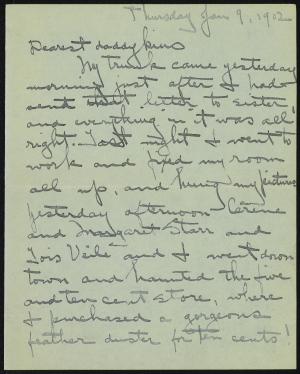 Thursday Jan 9, 1902
Dearest daddykins
My trunk came yesterday
morning just after I had
sent that letter to sister,
and everything in it was all
right. Last night I went to
work and fixed my room
all up, and hung my pictures
yesterday afternoon
and Margaret Starr and
Lois and I went down
town and haunted the five
and ten cent store, where
I purchased a gorgeous
feather duster for ten cents!